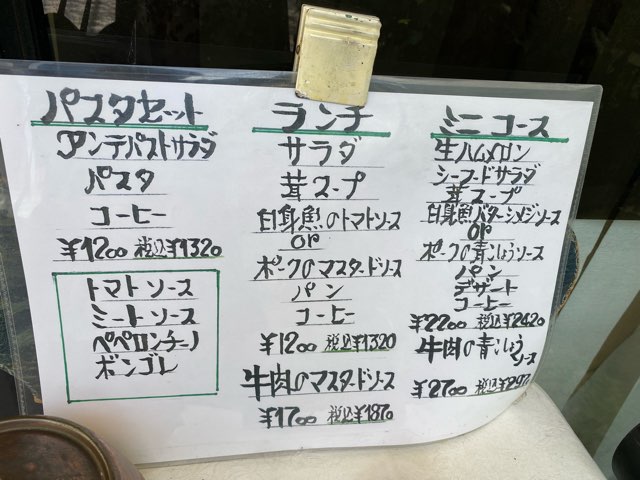 パスタセット
アンテパストサラダ
パスタ
コーヒー
¥1200 税込¥1320
トマトソース
ミートソース
ペペロンチーノ
ボンゴレ
ランチ
サラダ
茸スープ
白身魚のトマトソース
or
ポークのマスタードソース
パン
コーヒー
¥1200 税込¥1320
牛肉のマスタードソース
¥1700 税込¥1870
ミニコース
生ハムメロン
シーフードサラダ
茸スープ
白身魚バターシメジソース
or
ポークの青こしょうソース
パン
デザート
コーヒー
¥2200 税込¥2420
牛肉の青こしょう
ソース
¥2700 税込¥2970